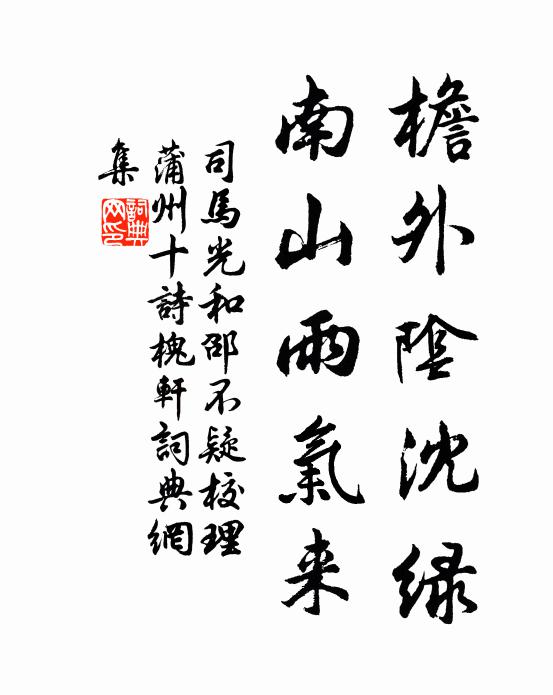 檐外陰沈綠
南山雨氣来
司馬光和邵不疑校理
蒲州十詩槐軒詞典網
集
詞典網印